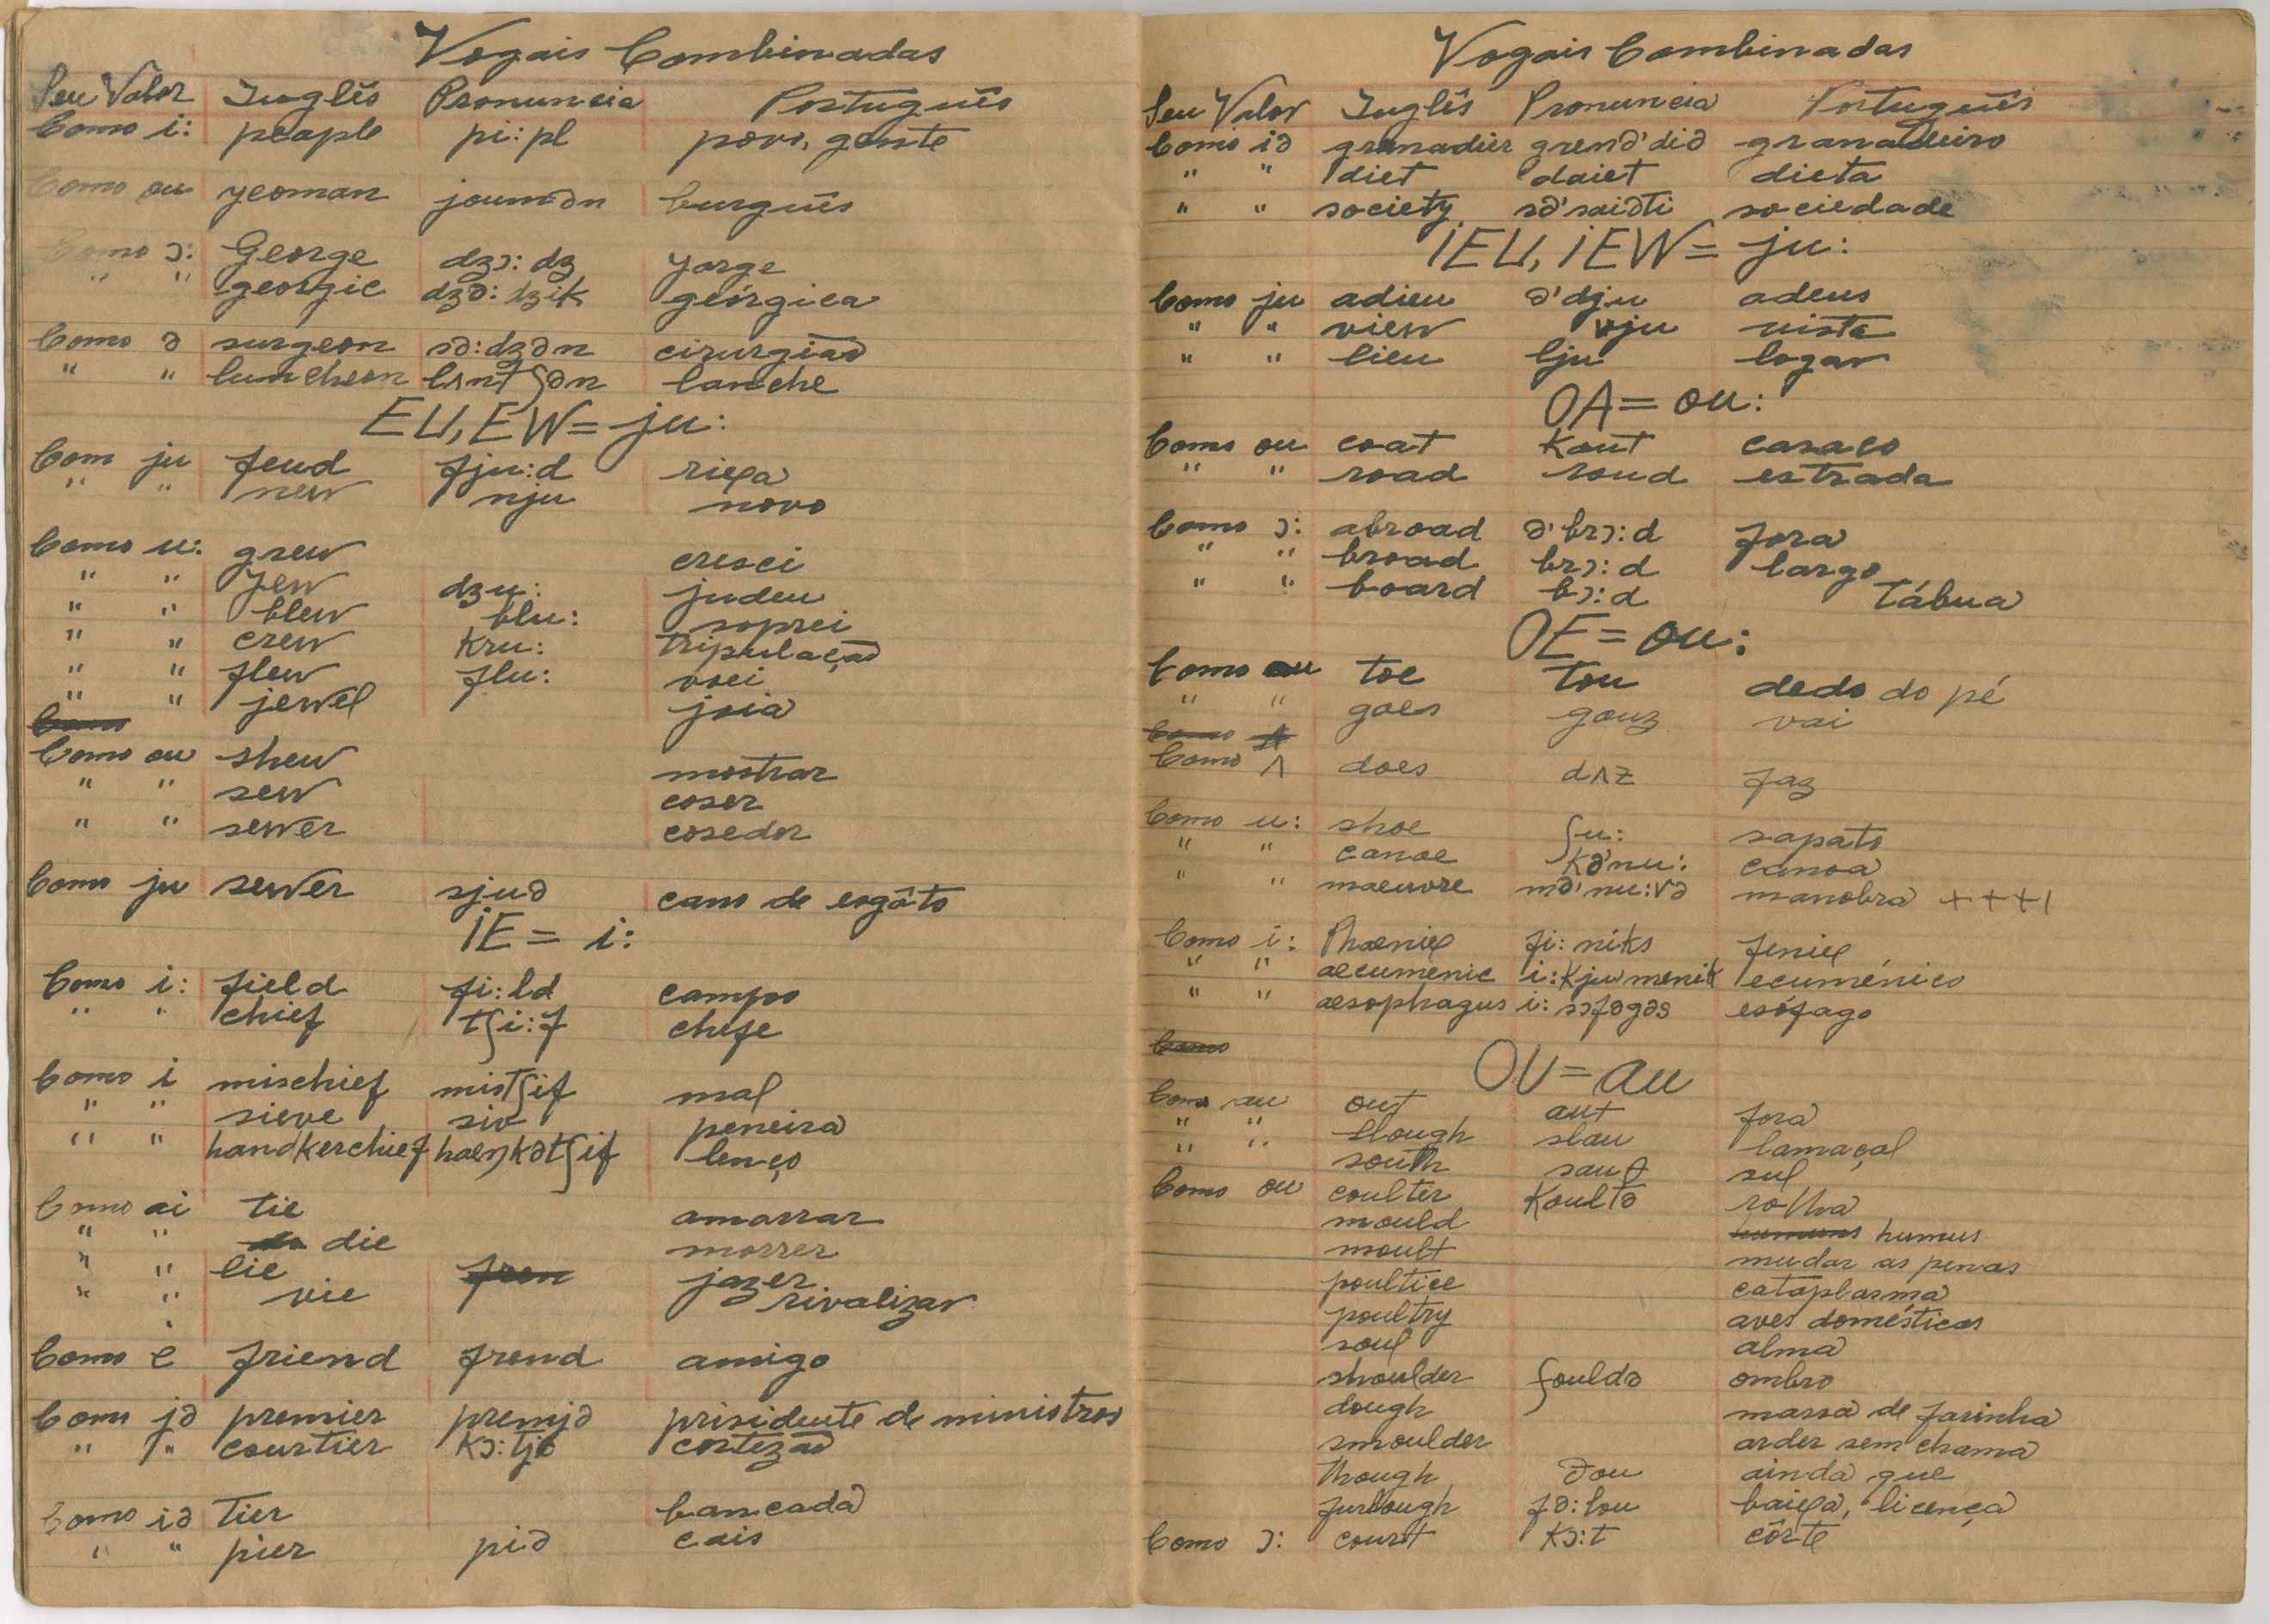 Vogais Combinadas
Seu Valor Inglês Pronuncia Português
Como i: peaple pi:pl povo, gente
Como ou yeoman joumən burguês
Como ɔ: George dzɔ:dz Jorge
" " georgic dzə:dzik geórgica
Como ə surgeon sə:dzən cirurgião
" " luncheon lʌntʃən lanche
EU, EW = ju:
Com ju feud fju:d rixa
" " new nju novo
Como u: grew cresci
" " Jew dzu: judeu
" " blew blu: soprei
" " crew kru: tripulação
" " flew flu: voei
" " jewel joia
Como
Como ou shew mostrar
" " sew coser
" " sewer cosedor
Como ju sewer sjuə cano de esgôto
IE = i:
Como i: field fi:ld campo
" " chief tʃi:f chefe
Como i mischief mistʃif mal
" " sieve siv peneira
" " handkerchief haeŋkətʃif lenço
Como ai tie amarrar
" " die morrer
" " lie fren jazer
" " vie rivalizar
Como e friend frend amigo
Como jə premier premjə prisidente de ministros
" " courtier kɔ:tjə cortezão
Como iə tier bancada
" " pier piə cais
Vogais Combinadas
Seu Valor Inglês Pronuncia Português
Como iə granadier grenə'diə granadeiro
" " diet daiet dieta
" " society sə'saiəti sociedade
IEU, IEW = ju:
Como ju adieu ə'dju adeus
" " view vju vista
" " lieu lju logar
OA = ou:
Como ou coat kout casaco
" " road roud estrada
Como ɔ: abroad ə'brɔ:d fora
" " broad brɔ:d largo
" " board bɔ:d tábua
OE = ou:
Como ou toe tou dedo do pé
" " goes gouz vai
Como
Como ʌ does dʌz faz
Como u: shoe ʃu: sapato
" " canoe kə'nu: canoa
" " maeuvre mə'nu:və manobra ++++1
Como i: Phœnix fi:niks fenix
" " aecumenic i:kjumenik ecuménico
" " aesophagus i:sɔfəgəs esófago
Como
OU = au
Como au out aut fora
" " slough slau lamaçal
" " south sauθ sul
Como ou coulter koultə rolha
mould humus humus
moult mudar as penas
poultice cataplasma
poultry aves domésticas
soul alma
shoulder ʃouldə ombro
dough massa de farinha
smoulder arder sem chama
though ðou ainda que
furlough fə:lou baixa, licença
Como ɔ: court kɔ:t côrte